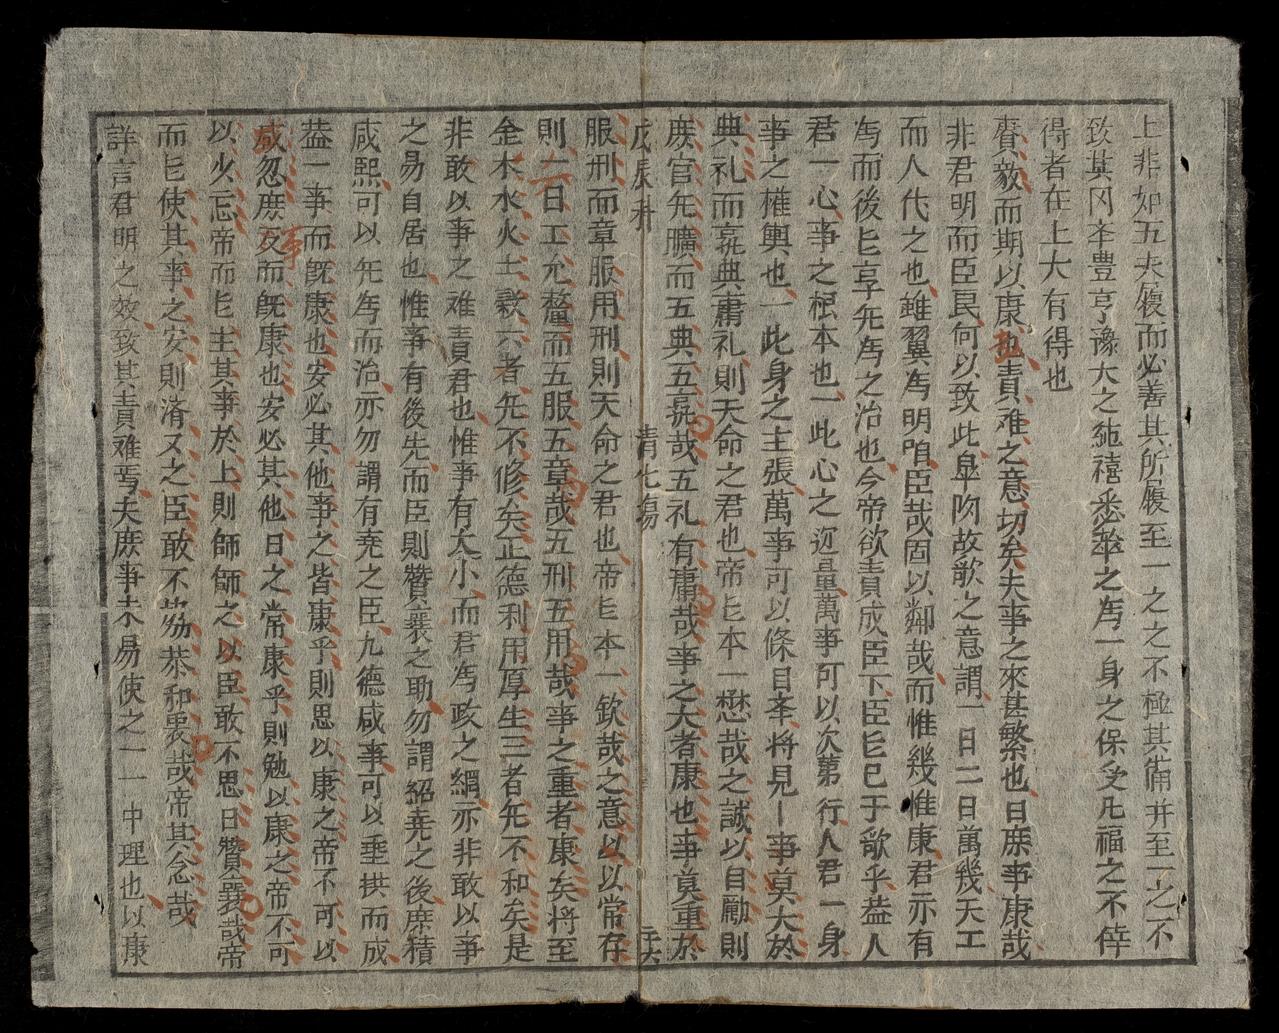 上非如五夫履而必善其所履至一之之不極其備并至一之不
致其冈夲豊亨豫大之純禧悉萃之為一身之保受凢福之不倖
得者在上大有得也
賡毅而期以康也責难之意切矣夫事之來甚繁也日庶事康哉
非君明而臣民何以致此皐陶故歌之意謂一日二日萬幾天工
而人代之也雖翼為明咱臣哉固以鄰哉而惟幾惟康君亦有
為而後㠯享先為之治也今帝欲責成臣下臣㠯巳于歌乎盖人
君一心事之根本也一此心之迎量萬事可以次第行人君一身
事之權輿也一此身之主張萬事可以條目夲将見一事莫大於
典礼而亮典庸礼則天命之君也帝㠯本一懋哉之誠以自勵則
庶官先曠而五典五亮哉五礼有庸哉事之大者康也事莫重於
戊辰科 清化場 六
服刑而章服用刑則天命之君也帝㠯本一欽哉之意以以常存
則一日工允釐而五服五章哉五刑五用哉事之重者康矣将至
金木水火土穀六者先不修矣正德利用厚生三者先不和矣是
非敢以事之难責君也惟事有大小而君為政之綱亦非敢以事
之易自居也惟事有後先而臣則贊襄之助勿謂紹堯之後庶積
咸熙可以先為而治亦勿謂有堯之臣九德咸事可以垂拱而成
盖一事而既康也安必其他事之皆康乎則思以康之帝不可以
咸忽庶事而既康也安必其他日之常康乎則勉以康之帝不可
以少忘帝而㠯主其事於上則師師之以臣敢不思日贊襄哉帝
而㠯使其事之安則濟乂之臣敢不協恭和衷哉帝其念哉
詳言君明之效致其責难焉夫庶事未易使之一一中理也以康